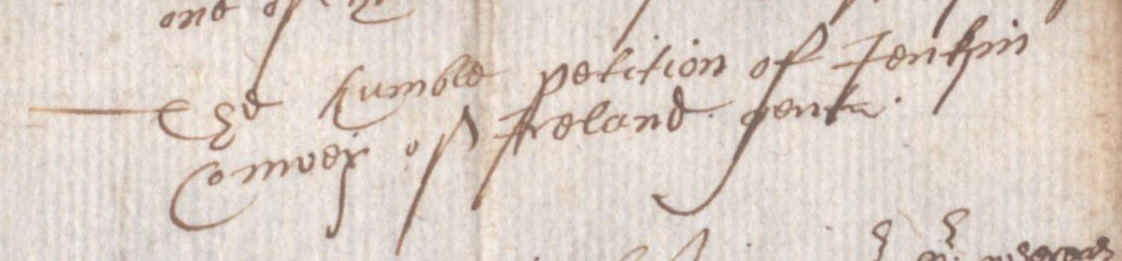 one of
The humble petition of Jenkin
Conwey of Ireland gent.